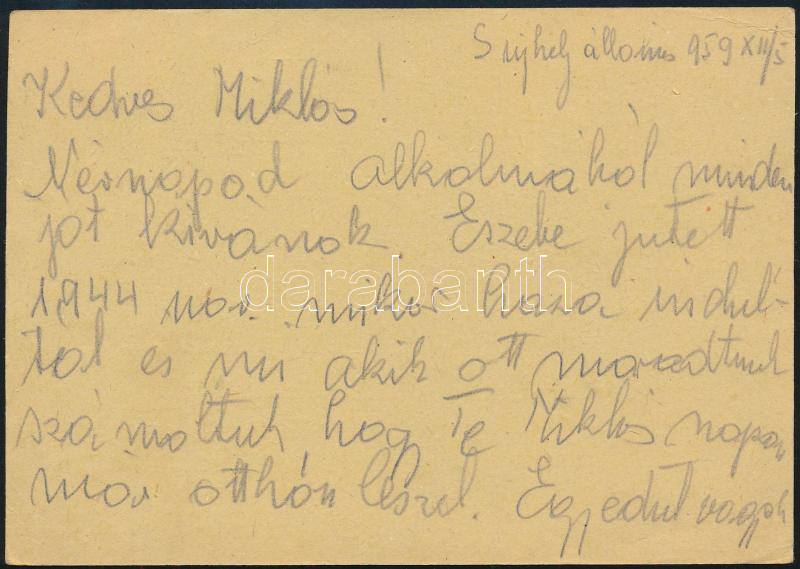 Sujhely állomás 959 XII/5
Kedves Miklós!
Névnapod alkalmából minden
jót kivánok. Eszebe jutott
1944 nov. mikor haza indul-
tál es mi akik ott maradtunk
számoltuk hogy Te Miklós napon
már otthon leszel. Egyedul vagyok
darabanth